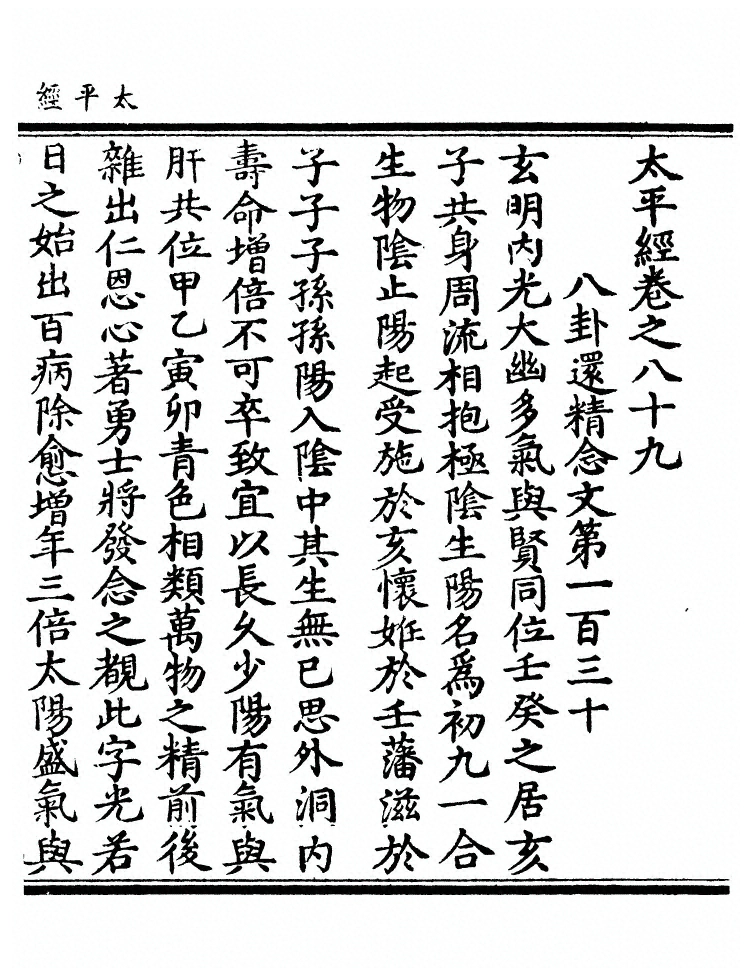 太平經
太平經卷之八十九
八卦還精念文第一百三十
玄明內光大幽多氣與賢同位壬癸之居亥
子共身周流相抱極陰生陽名爲初九一合
生物陰止陽起受施於亥懷姙於壬藩滋於
子子子孫孫陽入陰中其生無已思外洞內
壽命增倍不可卒致宜以長久少陽有氣與
肝共位甲乙寅卯青色相類萬物之精前後
雜出仁恩心著勇士將發念之覩此字光若
日之始出百病除愈增年三倍太陽盛氣與